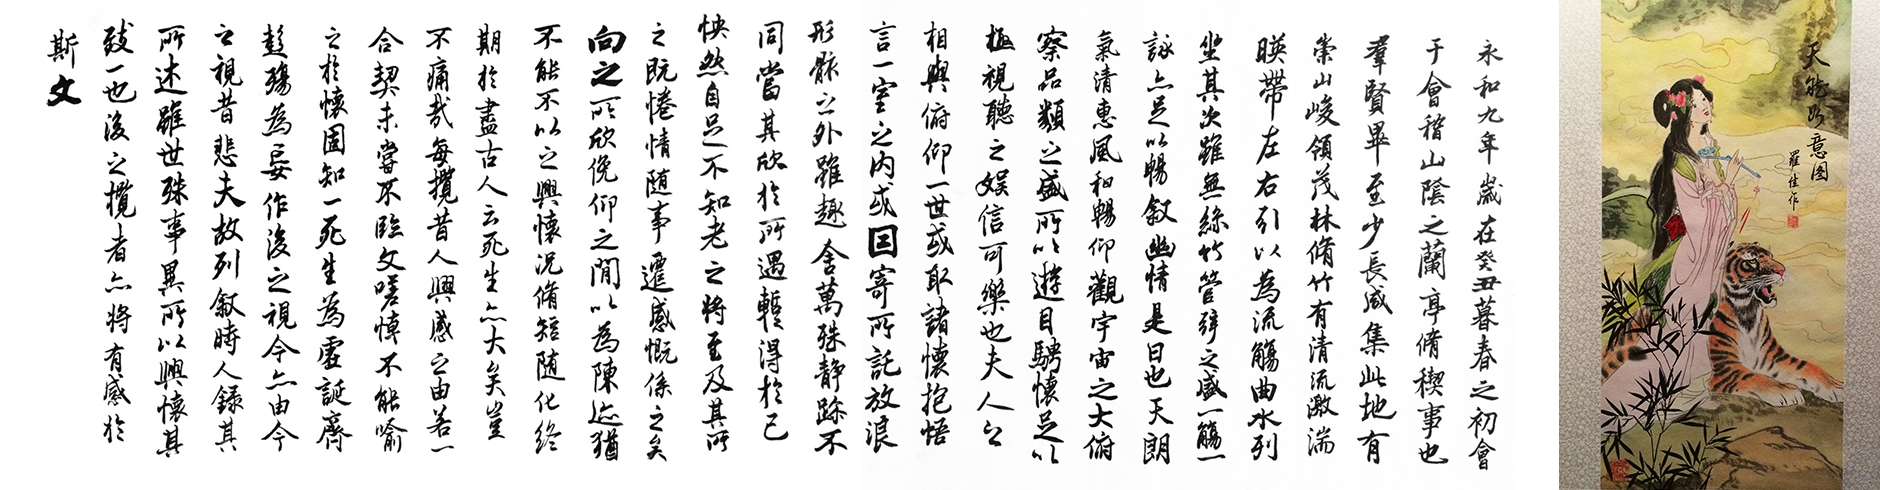 永和九年歲在癸丑暮春之初會
于會稽山陰之蘭亭脩稧事也
羣賢畢至少長咸集此地有
崇山峻領茂林脩竹有清流激湍
暎帶左右引以為流觴曲水列
坐其次雖無絲竹管弦之盛一觴一
詠亦足以暢敘幽情是日也天朗
氣清惠風和暢仰觀宇宙之大俯
察品類之盛所以遊目騁懷足以
極視聽之娛信可樂也夫人之
相與俯仰一世或取諸懷抱悟
言一室之內或因寄所託放浪
形骸之外雖趣舍萬殊靜躁不
同當其欣於所遇蹔得於己
怏然自足不知老之將至及其所
之既惓情随事遷感慨係之矣
向之所欣俛仰之閒以為陳迹猶
不能不以之興懷況脩短随化終
期於盡古人云死生亦大矣豈
不痛哉每攬昔人興感之由若一
合契未嘗不臨文嗟悼不能喻
之於懷固知一死生為虛誕齊
彭殤為妄作後之視今亦由今
之視昔悲夫故列敘時人錄其
所述雖世殊事異所以興懷其
致一也後之攬者亦將有感於
斯文
天 意图
羅佳作